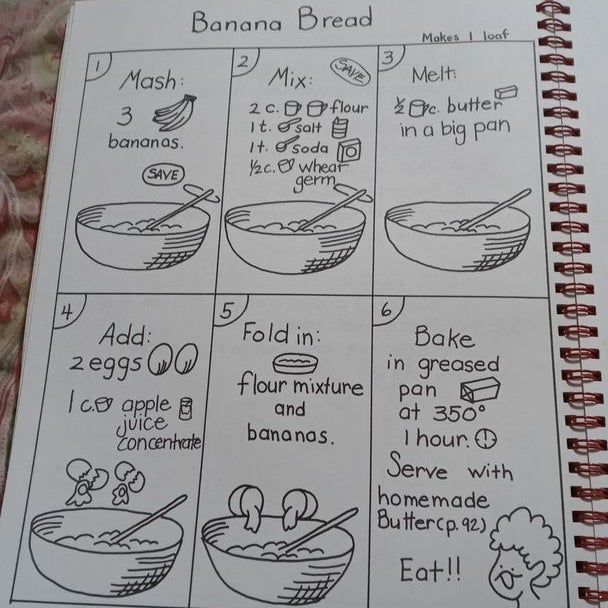 Banana Bread
Makes 1 loaf
1
Mash:
3
bananas.
SAVE
2
Mix:
SAVE
2 c. flour
1 t. salt
1 t. soda
½ c. wheat
germ
3
Melt:
½ c. butter
in a big pan
4
Add:
2 eggs
1 c. apple
juice
concentrate
5
Fold in:
flour mixture
and
bananas.
6
Bake
in greased
pan
at 350°
1 hour.
Serve with
homemade
Butter (p. 92)
Eat!!